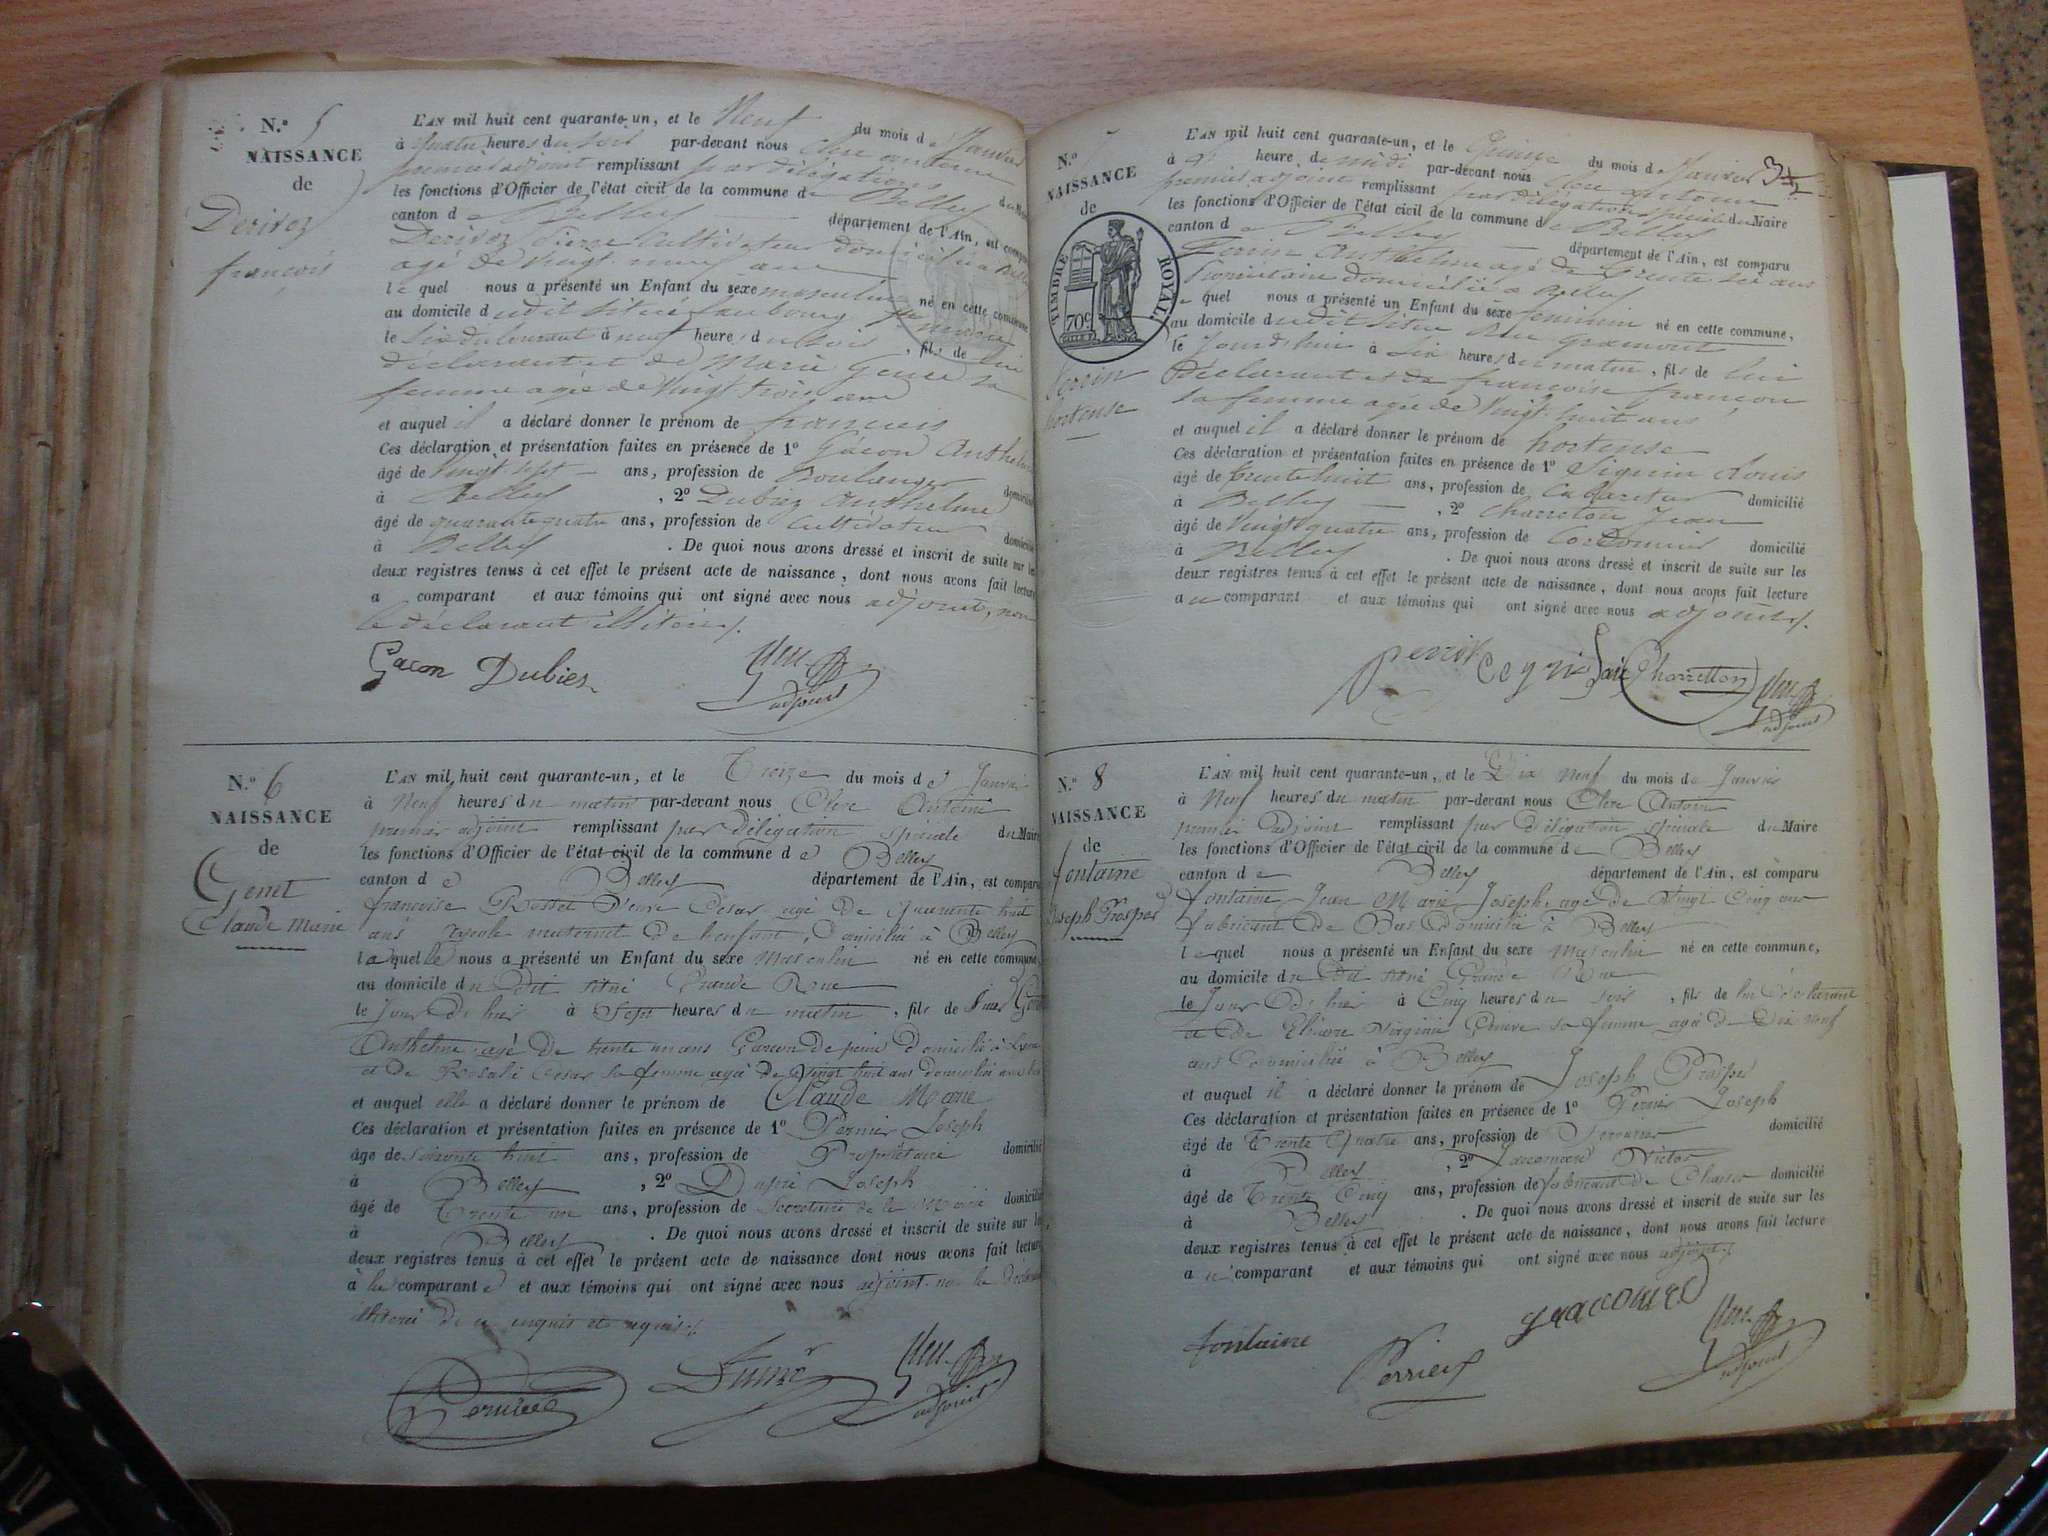 N.º 5
NAISSANCE
de
Derivoz
françois
L'AN mil huit cent quarante-un, et le Neuf du mois de Janvier
à quatre heures du soir par-devant nous Clerc antoine
premier adjoint remplissant par délégation
les fonctions d'Officier de l'état civil de la commune de Belley du Maire
canton de Belley département de l'Ain, est comparu
Derivoz Pierre Cultivateur domicilié a Belley
agé de vingt neuf ans
le quel nous a présenté un Enfant du sexe masculin né en cette commune
au domicile dudit situé faubourg
le Six du courant à neuf heures du soir, fils de lui
déclarant et de Marie sa
femme agée de Vingt trois ans
et auquel il a déclaré donner le prénom de françois
Ces déclaration et présentation faites en présence de 1º Gacon Anthelme
âgé de Vingt sept ans, profession de Boulanger domicilié
à Belley, 2º Dubiez Anthelme
âgé de quarante quatre ans, profession de Cultivateur domicilié
à Belley. De quoi nous avons dressé et inscrit de suite sur les
deux registres tenus à cet effet le présent acte de naissance, dont nous avons fait lecture
a comparant et aux témoins qui ont signé avec nous adjoint, non
le déclarant illitéré.
Gacon Dubiez adjoint
N.º 6
NAISSANCE
de
Genet
Claude Marie
L'AN mil huit cent quarante-un, et le Treize du mois de Janvier
à Neuf heures du matin par-devant nous Clerc Antoine
premier adjoint remplissant par délégation spéciale du Maire
les fonctions d'Officier de l'état civil de la commune de Belley
canton de Belley département de l'Ain, est comparu
françoise Rosset Cesar agé de Quarante huit
ans ayeule maternel de l'enfant, Domiciliée à Belley
laquelle nous a présenté un Enfant du sexe Masculin né en cette commune
au domicile du Dit situé Grande Rue
le Jour D'hier à Sept heures du matin, fils de
Anthelme agé De trente un ans Garçon de peine Domicilié à Lyon
et de Rosalie Cesar sa femme agée de Vingt huit ans domiciliée avec lui
et auquel elle a déclaré donner le prénom de Claude Marie
Ces déclaration et présentation faites en présence de 1º Pernier Joseph
âgé de Soixante huit ans, profession de Propriétaire domicilié
à Belley, 2º Dupré Joseph
âgé de Trente un ans, profession de Secretaire de la Mairie domicilié
à Belley. De quoi nous avons dressé et inscrit de suite sur les
deux registres tenus à cet effet le présent acte de naissance dont nous avons fait lecture
à la comparante et aux témoins qui ont signé avec nous adjoint non la déclarante
illiteré de ce enquis et requis
adjoint
3
N.º
NAISSANCE
de
TIMBRE ROYAL
70c
Perrin
hortense
L'AN mil huit cent quarante-un, et le Quinze du mois de Janvier
à heure de midi par-devant nous Clerc antoine
premier adjoint remplissant par délégation spéciale du Maire
les fonctions d'Officier de l'état civil de la commune de Belley
canton de Belley département de l'Ain, est comparu
Perrin Anthelme agé de Trente six ans
domicilié a Belley
le quel nous a présenté un Enfant du sexe feminin né en cette commune,
au domicile dudit situé Rue gramont
le Jourd'hui à Six heures du matin, fils de lui
Déclarant et de françoise françon
sa femme agée de Vingt huit ans
et auquel il a déclaré donner le prénom de hortense
Ces déclaration et présentation faites en présence de 1º Signin Louis
âgé de trente huit ans, profession de Cabaretier domicilié
à Belley, 2º Charreton Jean
âgé de Vingt quatre ans, profession de Cordonnier domicilié
à Belley. De quoi nous avons dressé et inscrit de suite sur les
deux registres tenus à cet effet le présent acte de naissance, dont nous avons fait lecture
au comparant et aux témoins qui ont signé avec nous adjoint.
perrin Charretton adjoint
N.º 8
NAISSANCE
de
fontaine
Joseph Prosper
L'AN mil huit cent quarante-un, et le Dix Neuf du mois de Janvier
à Neuf heures du matin par-devant nous Clerc Antoine
premier adjoint remplissant par délégation spéciale du Maire
les fonctions d'Officier de l'état civil de la commune de Belley
canton de Belley département de l'Ain, est comparu
fontaine Jean Marie Joseph, agé de Vingt Cinq ans
fabricant De Bas Domicilié à Belley
lequel nous a présenté un Enfant du sexe Masculin né en cette commune,
au domicile du Dit situé Grande Rue
le Jour D'hier à Cinq heures du soir, fils de lui déclarant
et de Virginie sa femme agée de Dix neuf
ans Domiciliée à Belley
et auquel il a déclaré donner le prénom de Joseph Prosper
Ces déclaration et présentation faites en présence de 1º Perrier Joseph
âgé de Trente Quatre ans, profession de Serrurier domicilié
à Belley, 2º Jacomard Victor
âgé de Trente Cinq ans, profession de fabricant de Chaises domicilié
à Belley. De quoi nous avons dressé et inscrit de suite sur les
deux registres tenus à cet effet le présent acte de naissance, dont nous avons fait lecture
au comparant et aux témoins qui ont signé avec nous adjoint.
fontaine Perrier adjoint